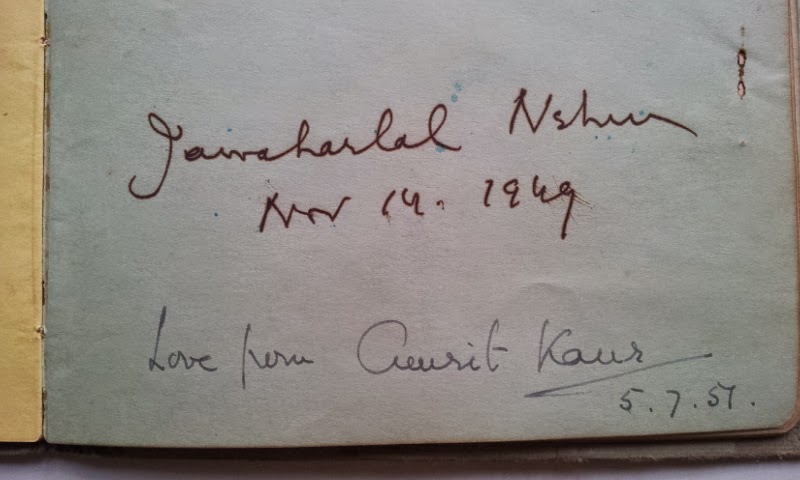 Jawaharlal Nehru
Nov 14. 1949
Love from Amrit Kaur
5.7.51.